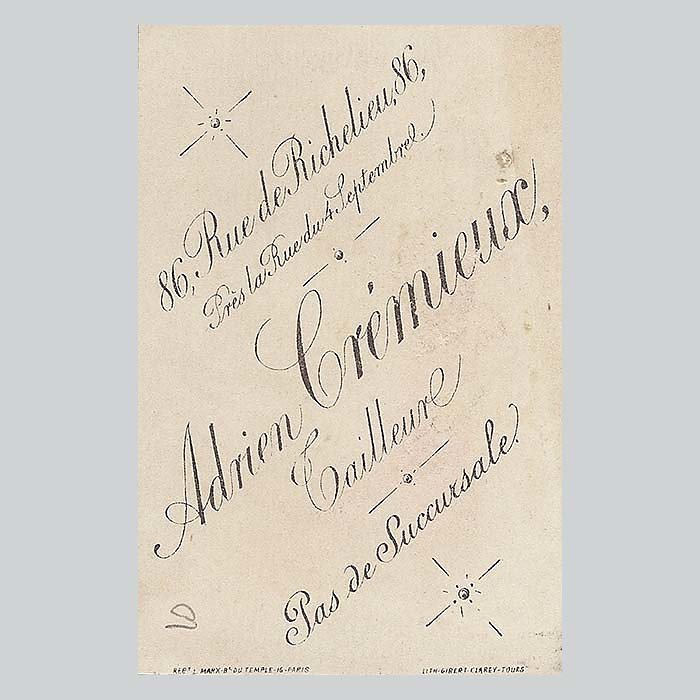 86, Rue de Richelieu, 86,
Près la Rue du 4 Septembre.
Adrien Crémieux,
Tailleur
Pas de Succursale.
REPᵗ L. MARX-Bᵈ DU TEMPLE-16-PARIS
LITH-GIBERT-CLAREY-TOURS